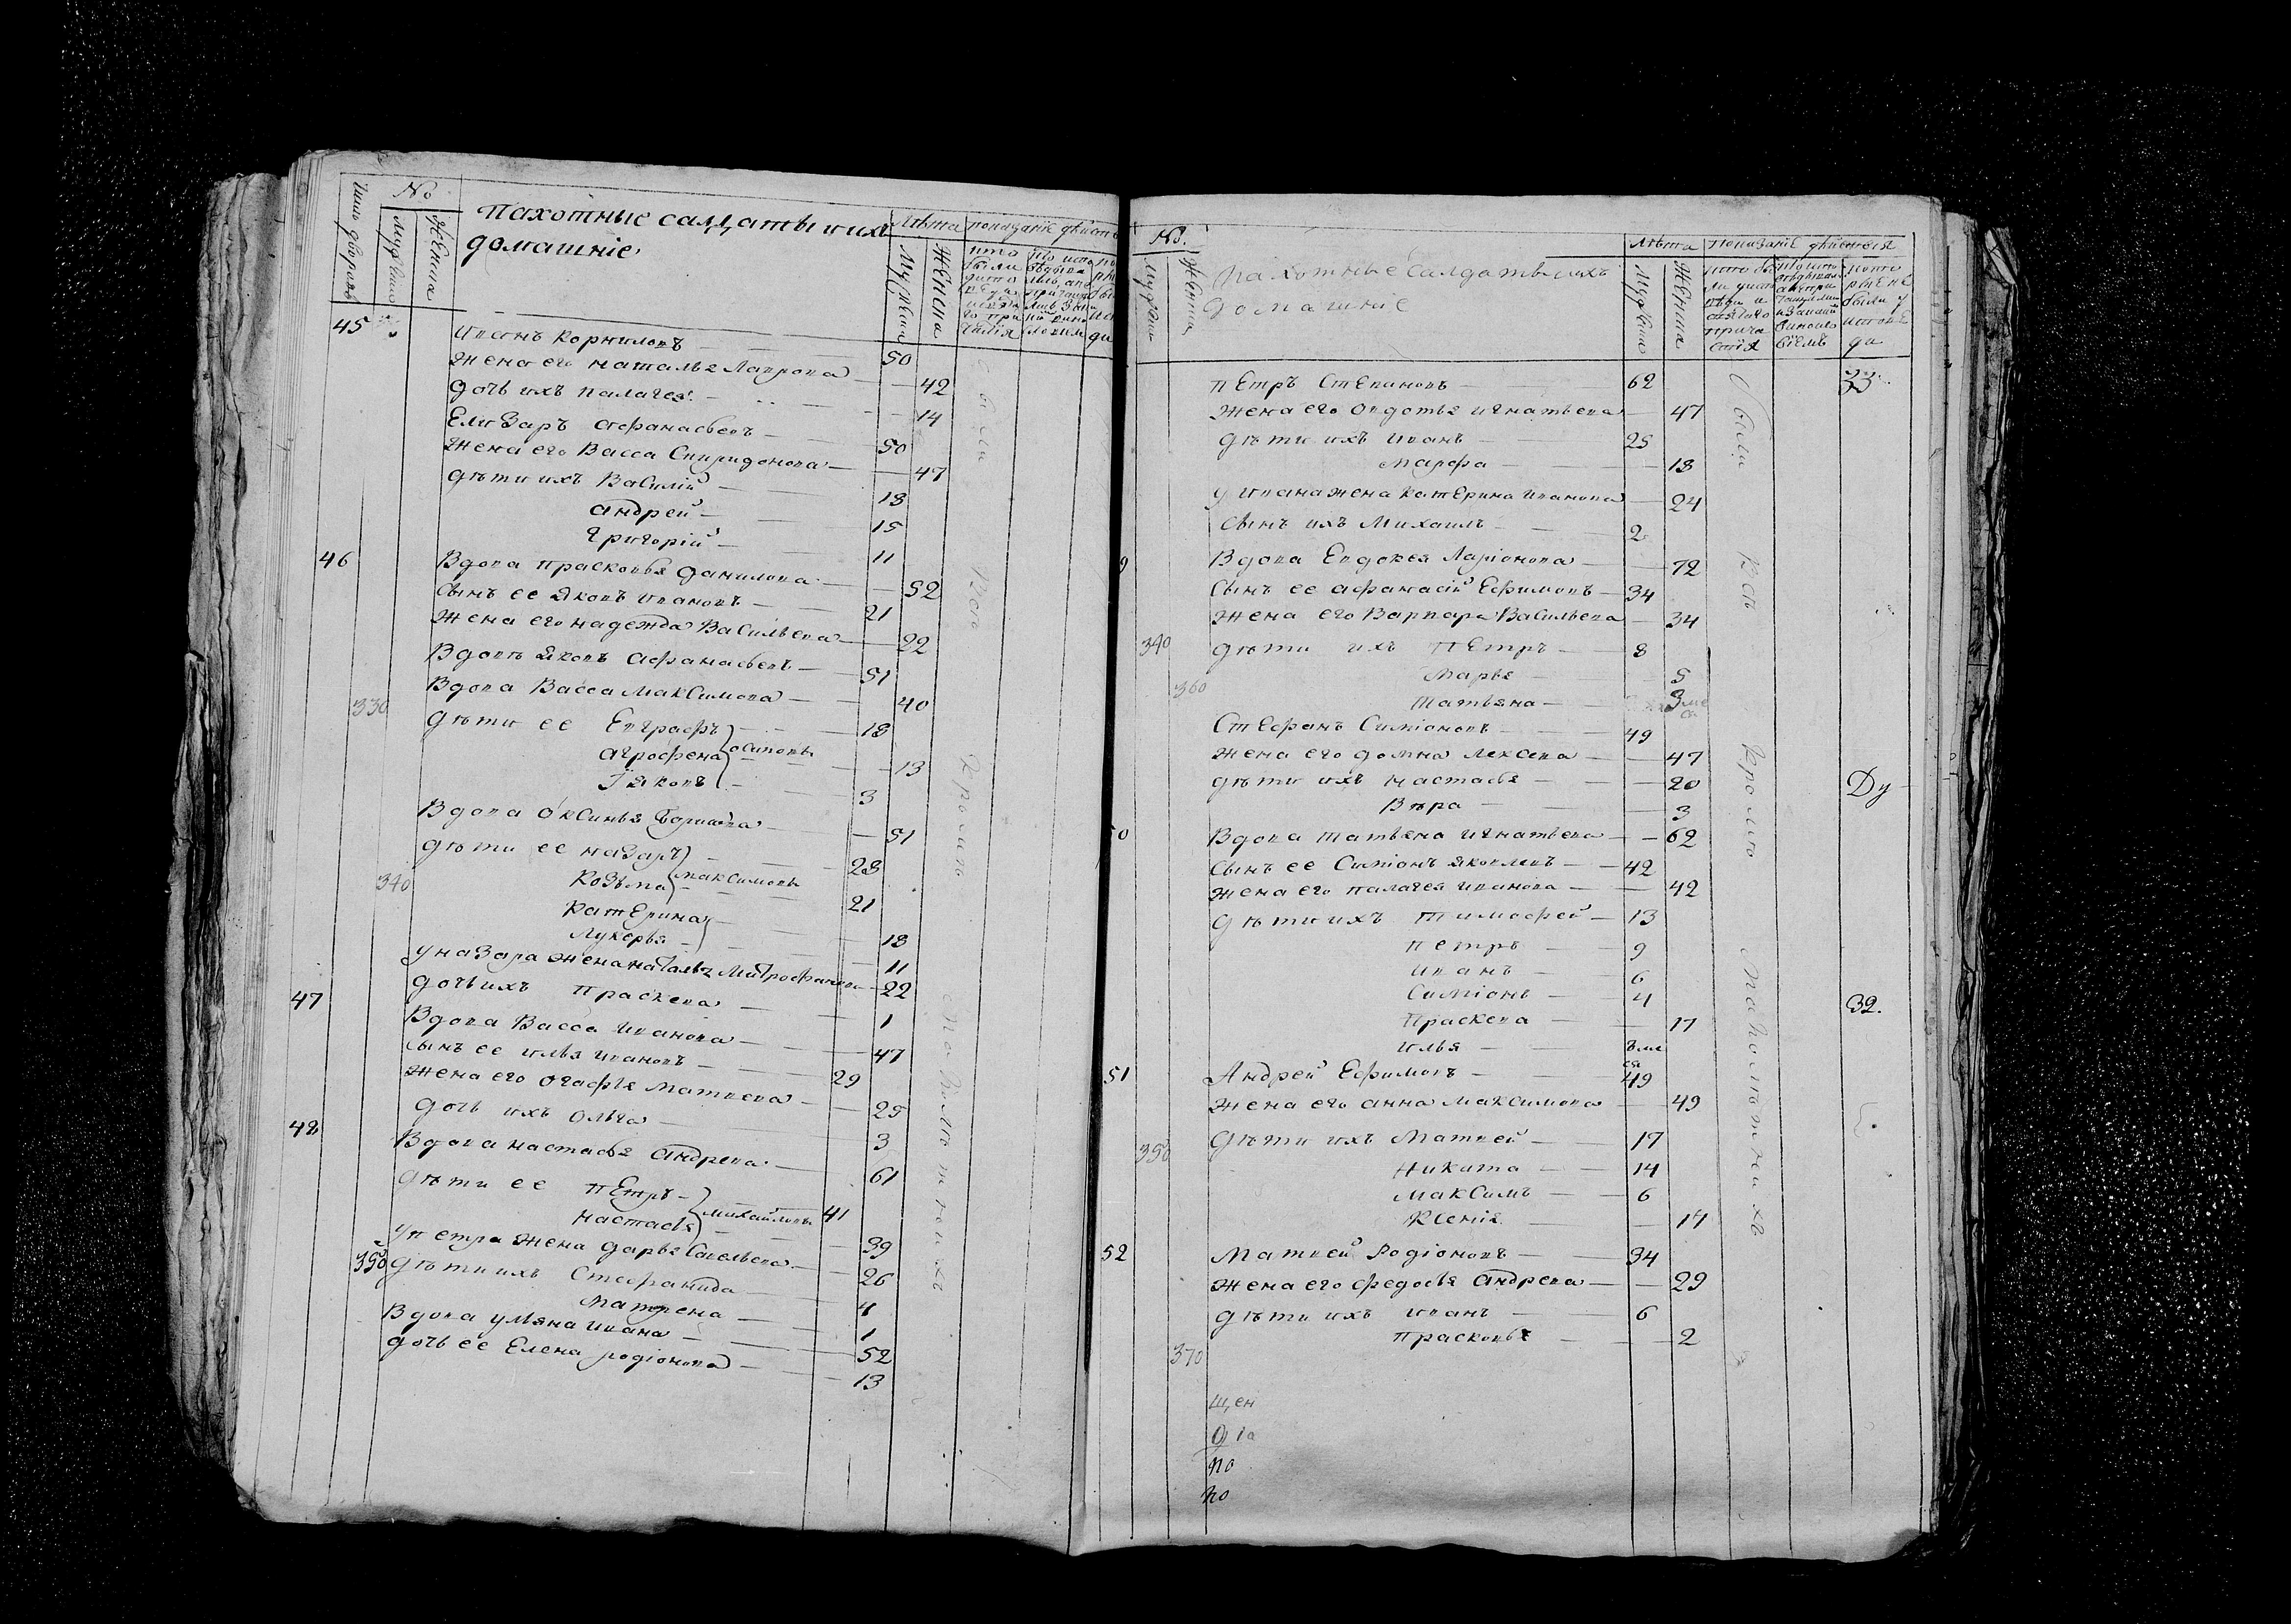 №
Число дворовъ
Мужеска
Женска
Пахотные салдаты и ихъ
домашніе
Лѣта
показаніе дѣйств
Мужеска
Женска
45
Иванъ Корниловъ — 50
Жена его Наталья Лаврова — 42
дочь ихъ Палагея — 14
Елизаръ Афанасьевъ — 50
Жена его Васса Спиридонова — 47
дѣти ихъ Василій — 18
Андрей — 15
Григорій — 11
46 Вдова Прасковья Данилова — 52
сынъ ее Яковъ Ивановъ — 21
Жена его Надежда Васильева — 22
Вдовъ Яковъ Афанасьевъ — 51
Вдова Васса Максимова — 40
330 дѣти ее Евграфъ — 18
Аграфена Осиповы — 13
Іяковъ — 3
Вдова Оксинья — 51
дѣти ее Назаръ — 23
340 Козьма Максимовы — 21
Катерина — 18
Лукерья — 11
у Назара жена Наталья Митрофанова — 22
дочь ихъ Праскева — 1
47 Вдова Васса Иванова — 47
сынъ ее Илья Ивановъ — 29
Жена его Огафья Матвева — 25
дочь ихъ Ольга — 3
48 Вдова Настасья Андрева — 61
дѣти ее Петръ — 41
Настасья Михайловы — 39
у Петра жена Дарья Савельева — 26
350 дѣти ихъ Стефанида — 4
Матрена — 1
Вдова Ульяна Ивана — 52
дочь ее Елена Родіонова — 13
Были
Всѣ
Кромѣ
Маколѣтнихъ
№.
Мужеска
Женска
Пахотные Салдаты и ихъ
домашніе
Лѣта
показаніе дѣйствія
Мужеска
Женска
Петръ Степановъ — 62
33
Жена его Овдотья Игнатьева — 47
дѣти ихъ Иванъ — 25
Марфа — 18
у Ивана жена Катерина Иванова — 24
сынъ ихъ Михаилъ — 2
9 Вдова Евдокея Ларіонова — 72
Сынъ ее Афанасій Ефимовъ — 34
Жена его Варвара Васильева — 34
340 дѣти ихъ Петръ — 8
Марья — 5
360 Татьяна — 3 ме
Стефанъ Симіоновъ — 49
Жена его Домна Лексева — 47
дѣти ихъ Настасья — 20
Ду
Вѣра — 3
50 Вдова Татьяна Игнатьева — 62
Сынъ ее Симіонъ Яковлевъ — 42
Жена его Палагея Иванова — 42
дѣти ихъ Тимофей — 13
Петръ — 9
Иванъ — 6
Симіонъ — 4
32.
Праскева — 17
Илья — 8 ме
51 Андрей Ефимовъ — 49
Жена его Анна Максимова — 49
350 дѣти ихъ Матвей — 17
Никита — 14
Максимъ — 6
Ксенія — 14
52 Матвей Родіоновъ — 34
Жена его Федосья Андрева — 29
дѣти ихъ Иванъ — 6
370 Прасковья — 2
были
Всѣ
Кромѣ
Маколѣтнихъ
щен
Діа
по
по